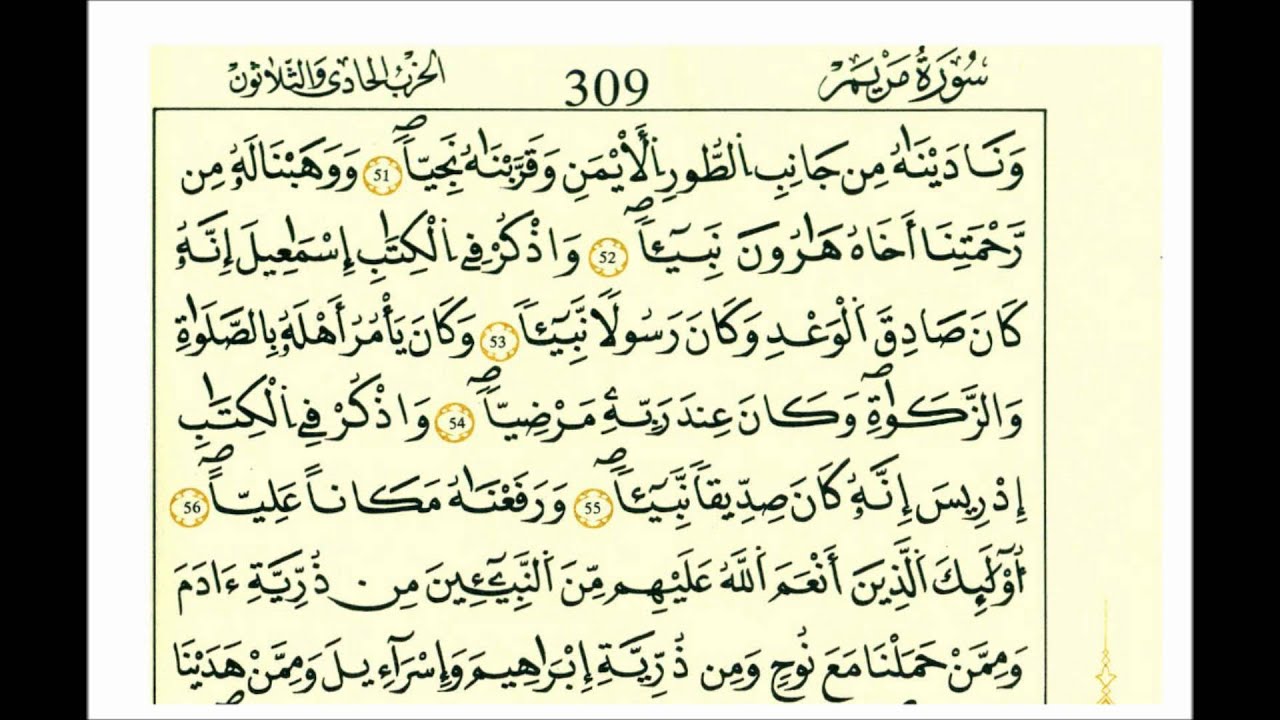 سُورَةُ مَرْيَمَ 309 الحزب الحادي والثلاثون
وَنَادَيْنَٰهُ مِن جَانِبِ اِ۬لطُّورِ اِ۬لَايْمَنِ وَقَرَّبْنَٰهُ نَجِيّاٗۖ 51 وَوَهَبْنَا لَهُۥ مِن
رَّحْمَتِنَا أَخَاهُ هَٰرُونَ نَبِيٓـٔاٗۖ 52 وَاذْكُرْ فِے اِ۬لْكِتَٰبِ إِسْمَٰعِيلَ إِنَّهُۥ
كَانَ صَادِقَ اَ۬لْوَعْدِ وَكَانَ رَسُولاٗ نَّبِيٓـٔاٗ 53 وَكَانَ يَأْمُرُ أَهْلَهُۥ بِالصَّلَوٰةِ
وَالزَّكَوٰةِۖ وَكَانَ عِندَ رَبِّهِۦ مَرْضِيّاٗۖ 54 وَاذْكُرْ فِے اِ۬لْكِتَٰبِ
إِدْرِيسَ إِنَّهُۥ كَانَ صِدِّيقاٗ نَّبِيٓـٔاٗۖ 55 وَرَفَعْنَٰهُ مَكَاناً عَلِيّاًۖ 56
اُ۟وْلَٰٓئِكَ اَ۬لذِينَ أَنْعَمَ اَ۬للَّهُ عَلَيْهِم مِّنَ اَ۬لنَّبِيٓـِٕينَ مِن ذُرِّيَّةِ ءَادَمَ
وَمِمَّنْ حَمَلْنَا مَعَ نُوحٍ وَمِن ذُرِّيَّةِ إِبْرَٰهِيمَ وَإِسْرَآءِيلَ وَمِمَّنْ هَدَيْنَا